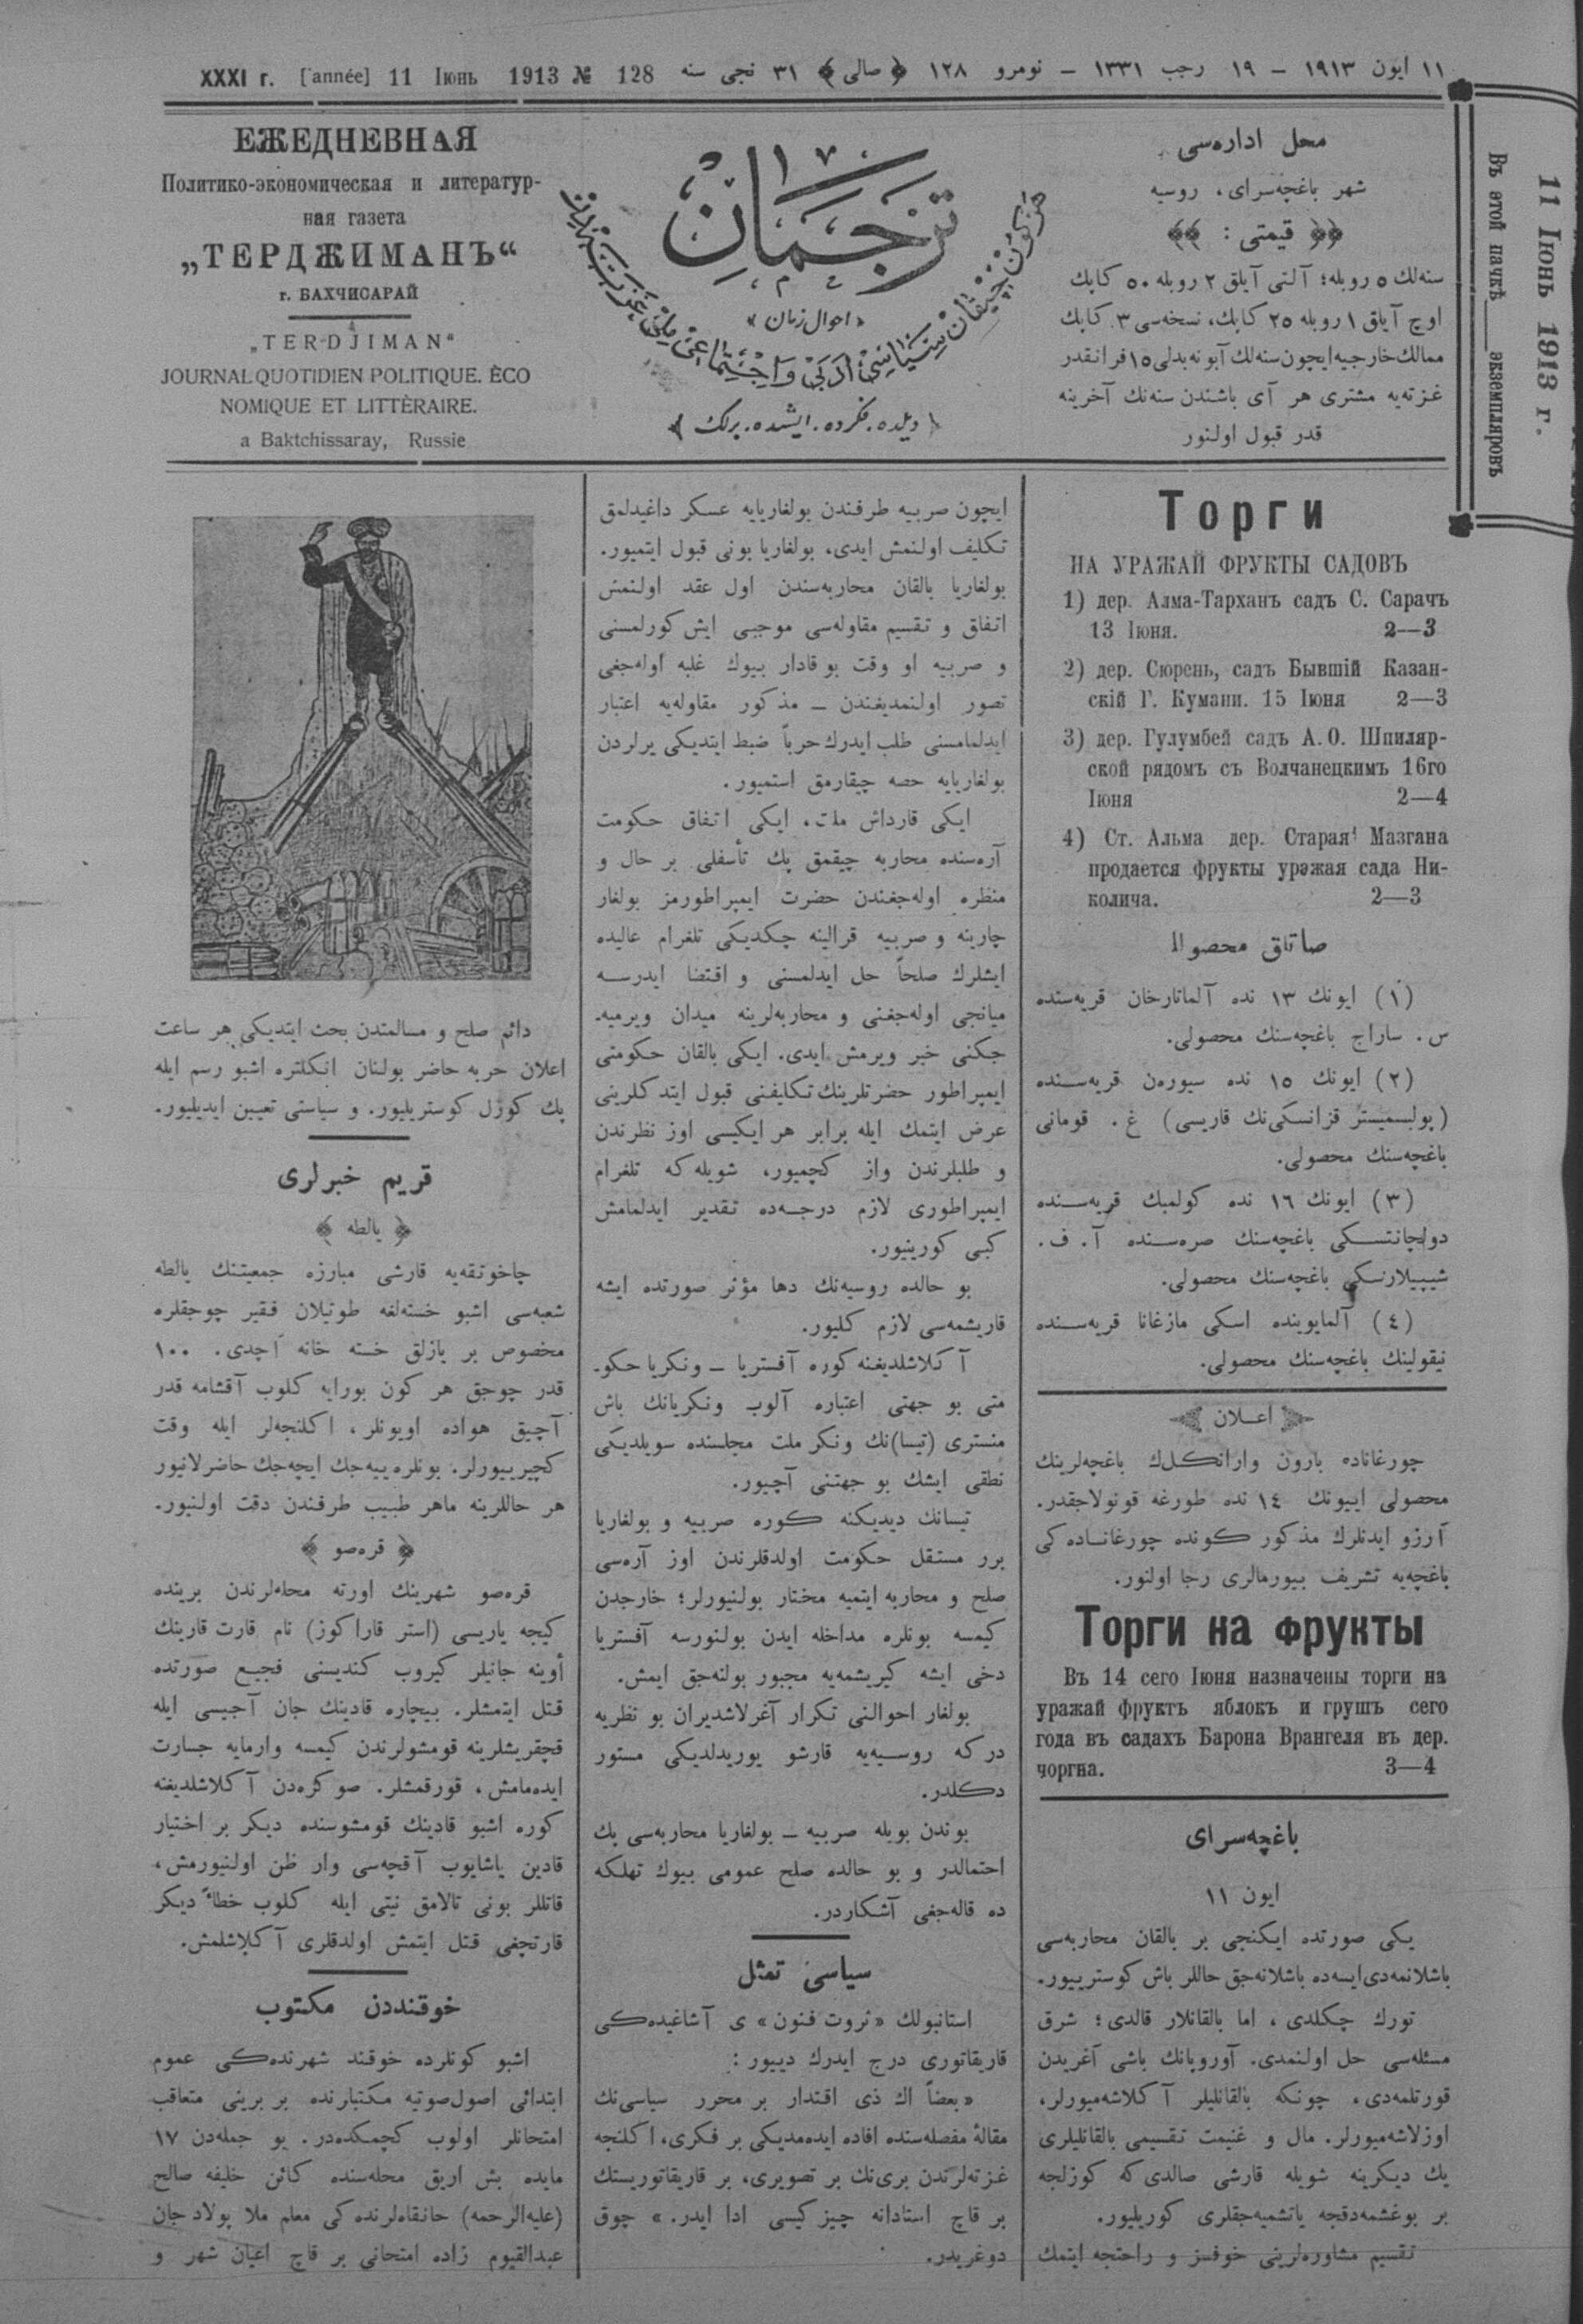 XXXI г. [année] 11 Іюнь 1913 № 128 ١١ ایون ١٩١٣ – ١٩ رجب ١٣٣١ – نومرو ١٢٨ ﴿ صالی ﴾ ٣١ نجی سنه
ЕЖЕДНЕВНАЯ
Политико-экономическая и литератур-
ная газета
„ТЕРДЖИМАНЪ“
г. БАХЧИСАРАЙ
„TERDJIMAN“
JOURNAL QUOTIDIEN POLITIQUE. ÈCO
NOMIQUE ET LITTÈRAIRE.
a Baktchissaray, Russie
ترجمان
«احوال زمان»
﴿ دیلده. فکرده. ایشده. برلك ﴾
محل اداره‌سی
شهر باغچه‌سرای، روسیه
﴿﴿ قیمتی : ﴾﴾
سنه‌لك ٥ روبله؛ آلتی آیلق ٢ روبله ٥٠ کاپك
اوچ آیلق ١ روبله ٢٥ کاپك، نسخه‌سی ٣ کاپك
ممالك خارجیه ایچون سنه‌لك آبونه بدلی ١٥ فرانقدر
غزته‌یه مشتری هر آی باشندن سنه‌نك آخرینه
قدر قبول اولنور
11 Іюнь 1913 г.
Въ этой пачкѣ экземпляровъ
Торги
НА УРАЖАЙ ФРУКТЫ САДОВЪ
1) дер. Алма-Тарханъ садъ С. Сарачъ
13 Іюня. 2—3
2) дер. Сюрень, садъ Бывшій Казан-
скій Г. Кумани. 15 Іюня 2—3
3) дер. Гулумбей садъ А. О. Шпиляр-
ской рядомъ съ Волчанецкимъ 16го
Іюня 2—4
4) Ст. Альма дер. Старая Мазгана
продается фрукты уражая сада Ни-
колича. 2—3
صاتلق محصول
(١) ایونك ١٣ نده آلماتارخان قریه‌سنده
س. ساراچ باغچه‌سنك محصولی.
(٢) ایونك ١٥ نده سیورەن قریه‌سنده
غ. قومانی
باغچه‌سنك محصولی.
(٣) ایونك ١٦ نده کولمبك قریه‌سنده
دولچانتسکی باغچه‌سنك صره‌سنده آ. ف.
شپیلارنسکی باغچه‌سنك محصولی.
(٤) آلمابوینده اسکی مازغانا قریه‌سنده
نیقولینك باغچه‌سنك محصولی.
اعلان
چورغاناده بارون وارانکلك باغچه‌لرینك
محصولی ایونك ١٤ نده طورغه قونولاجقدر.
آرزو ایدنلرك مذکور کونده چورغاناده کی
باغچه‌یه تشریف بیورمالری رجا اولنور.
Торги на фрукты
Въ 14 сего Іюня назначены торги на
уражай фруктъ яблокъ и грушъ сего
года въ садахъ Барона Врангеля въ дер.
чоргна. 3—4
باغچه‌سرای
ایون ١١
یکی صورتده ایکنجی بر بالقان محاربه‌سی
باشلانمه‌دی ایسه‌ده باشلانه‌جق حاللر باش کوسترییور.
تورك چکلدی، اما بالقانلار قالدی؛ شرق
مسئله‌سی حل اولنمدی. آوروپانك باشی آغریدن
قورتلمه‌دی، چونکه بالقانلیلر آ کلاشه‌میورلر،
اوزلاشه‌میورلر. مال و غنیمت تقسیمی بالقانلیلری
یك دیکرینه شویله قارشی صالدی که کوزلجه
بر بوغشمه‌دقجه یاتشمیه‌جقلری کوریلیور.
تقسیم مشاوره‌لرینی خوفسز و راحتجه ایتمك
ایچون صربیه طرفندن بولغاریایه عسکر داغیدلمق
تکلیف اولنمش ایدی، بولغاریا بونی قبول ایتمیور.
بولغاریا بالقان محاربه‌سندن اول عقد اولنمش
اتفاق و تقسیم مقاوله‌سی موجبی ایش کورلمسنی
و صربیه او وقت بو قادار بیوك غلبه اوله‌جغی
تصور اولنمدیغندن – مذکور مقاوله‌یه اعتبار
ایدلمامسنی طلب ایدرك حرباً ضبط ایتدیکی یرلردن
بولغاریایه حصه چیقارمق استمیور.
ایکی قارداش ملت، ایکی اتفاق حکومت
آره‌سنده محاربه چیقمق پك تأسفلی بر حال و
منظره اوله‌جغندن حضرت ایمپراطورمز بولغار
چارینه و صربیه قرالینه چکدیکی تلغرام عالیده
ایشلرك صلحاً حل ایدلمسنی و اقتضا ایدرسه
میانجی اوله‌جغنی و محاربه‌لرینه میدان ویرمیه-
جکنی خبر ویرمش ایدی. ایکی بالقان حکومتی
ایمپراطور حضرتلرینك تکلیفنی قبول ایتدکلرینی
عرض ایتمك ایله برابر هر ایکیسی اوز نظرندن
و طلبلرندن واز کچمیور، شویله که تلغرام
ایمپراطوری لازم درجه‌ده تقدیر ایدلمامش
کبی کورینیور.
بو حالده روسیه‌نك دها مؤثر صورتده ایشه
قاریشمه‌سی لازم کلیور.
آ کلاشلدیغنه کوره آفستریا – ونکریا حکو-
متی بو جهتی اعتباره آلوب ونکریانك باش
منستری (تیسا)نك ونکر ملت مجلسنده سویلدیکی
نطقی ایشك بو جهتنی آچیور.
تیسانك دیدیکنه کوره صربیه و بولغاریا
برر مستقل حکومت اولدقلرندن اوز آره‌سی
صلح و محاربه ایتمیه مختار بولنیورلر؛ خارجدن
کیمسه بونلره مداخله ایدن بولنورسه آفستریا
دخی ایشه کیریشمه‌یه مجبور بولنه‌جق ایمش.
بولغار احوالنی تکرار آغرلاشدیران بو نظریه
درکه روسیه‌یه قارشو یوریدلدیکی مستور
دکلدر.
بوندن بویله صربیه – بولغاریا محاربه‌سی پك
احتمالدر و بو حالده صلح عمومی بیوك تهلکه
ده قاله‌جغی آشکاردر.
سیاسی تمثل
استانبولك «ثروت فنون» ی آشاغیده‌کی
قاریقاتوری درج ایدرك دییور :
«بعضاً اك ذی اقتدار بر محرر سیاسی‌نك
مقالهٔ مفصله‌سنده افاده ایده‌مدیکی بر فکری، اکلنجه
غزته‌لرندن بری‌نك بر تصویری، بر قاریقاتوریستك
بر قاچ استادانه چیزکیسی ادا ایدر.» چوق
دوغریدر.
دائم صلح و مسالمتدن بحث ایتدیکی هر ساعت
اعلان حربه حاضر بولنان انکلتره اشبو رسم ایله
پك کوزل کوستریلیور. و سیاستی تعیین ایدیلیور.
قریم خبرلری
﴿ یالطه ﴾
چاخوتقه‌یه قارشی مبارزه جمعیتنك یالطه
شعبه‌سی اشبو خسته‌لغه طوتیلان فقیر چوجقلره
مخصوص بر یازلق خسته خانه آچدی. ١٠٠
قدر چوجق هر کون بورایه کلوب آقشامه قدر
آچیق هواده اویونلر، اکلنجه‌لر ایله وقت
کچیرییورلر. بونلره ییه‌جك ایچه‌جك حاضرلانیور
هر حاللرینه ماهر طبیب طرفندن دقت اولنیور.
﴿ قره‌صو ﴾
قره‌صو شهرینك اورته محله‌لرندن برینده
کیجه یاریسی (استر قاراکوز) نام قارت قارینك
أوینه جانیلر کیروب کندیسنی فجیع صورتده
قتل ایتمشلر. بیچاره قادینك جان آجیسی ایله
قچقریشلرینه قومشولرندن کیمسه وارمایه جسارت
ایده‌مامش، قورقمشلر. صوکره‌دن آ کلاشلدیغنه
کوره اشبو قادینك قومشوسنده دیکر بر اختیار
قادین یاشایوب آقچه‌سی وار ظن اولنیورمش،
قاتللر بونی تالامق نیتی ایله کلوب خطاءً دیکر
قارتچغی قتل ایتمش اولدقلری آ کلاشلمش.
خوقنددن مکتوب
اشبو کونلرده خوقند شهرنده‌کی عموم
ابتدائی اصول صوتیه مکتبلرنده بر برینی متعاقب
امتحانلر اولوب کچمکده‌در. بو جمله‌دن ١٧
مایده بش اریق محله‌سنده کائن خلیفه صالح
(علیه‌الرحمه) خانقاه‌لرنده کی معلم ملا پولاد جان
عبدالقیوم زاده امتحانی بر قاچ اعیان شهر و